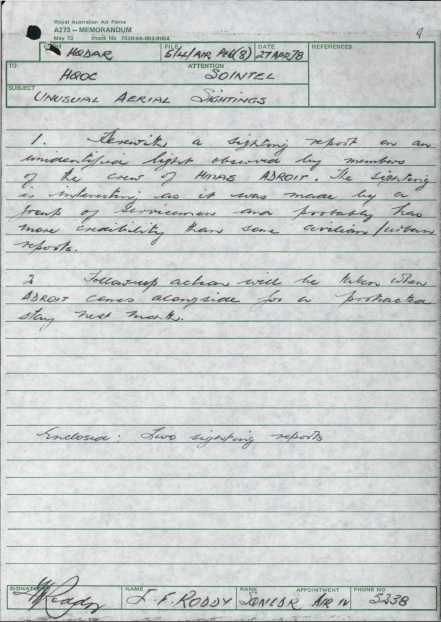 Royal Australian Air Force
A273 – MEMORANDUM
May 72 Stock No 7530-66-062-8064
9
FROM HQDAR
FILE 5/4/AIR Pt6(8)
DATE 27 APR 78
REFERENCES
TO HQOC
ATTENTION SOINTEL
SUBJECT UNUSUAL AERIAL SIGHTINGS
1. Herewith a sighting report on an
unidentified light observed by members
of the crew of HMAS ADROIT. The sighting
is interesting as it was made by a
group of Servicemen and probably has
more credibility than some civilian/urban
reports.
2 Follow-up action will be taken when
ADROIT comes alongside for a protracted
stay next month.
Enclosed: Two sighting reports
SIGNATURE
NAME F. F. RODDY
RANK
APPOINTMENT
PHONE NO
5238